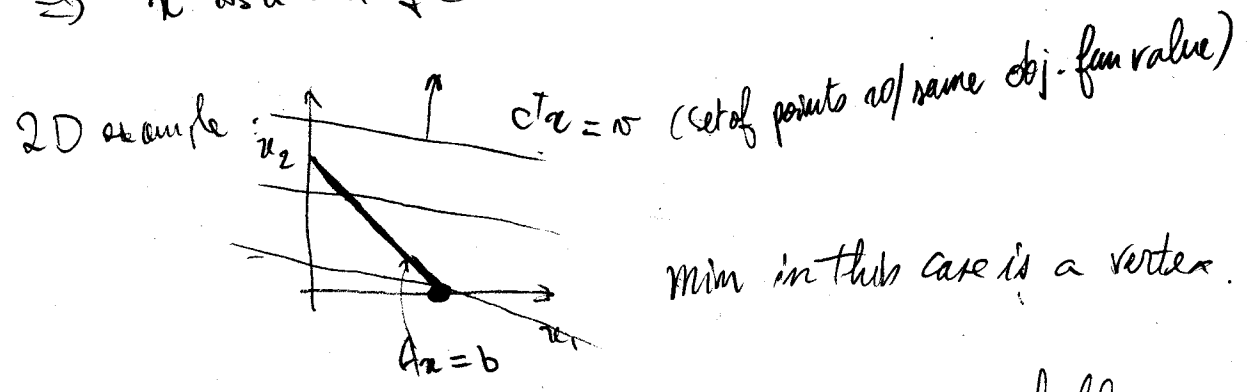 2D example :
cᵀx = v (set of points w/ same obj. fun value)
x₂
min in this case is a vertex.
x₁
Ax = b